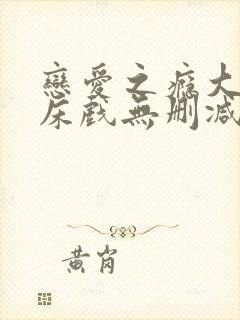 戀愛之癮大
床戲無刪減
黄肖